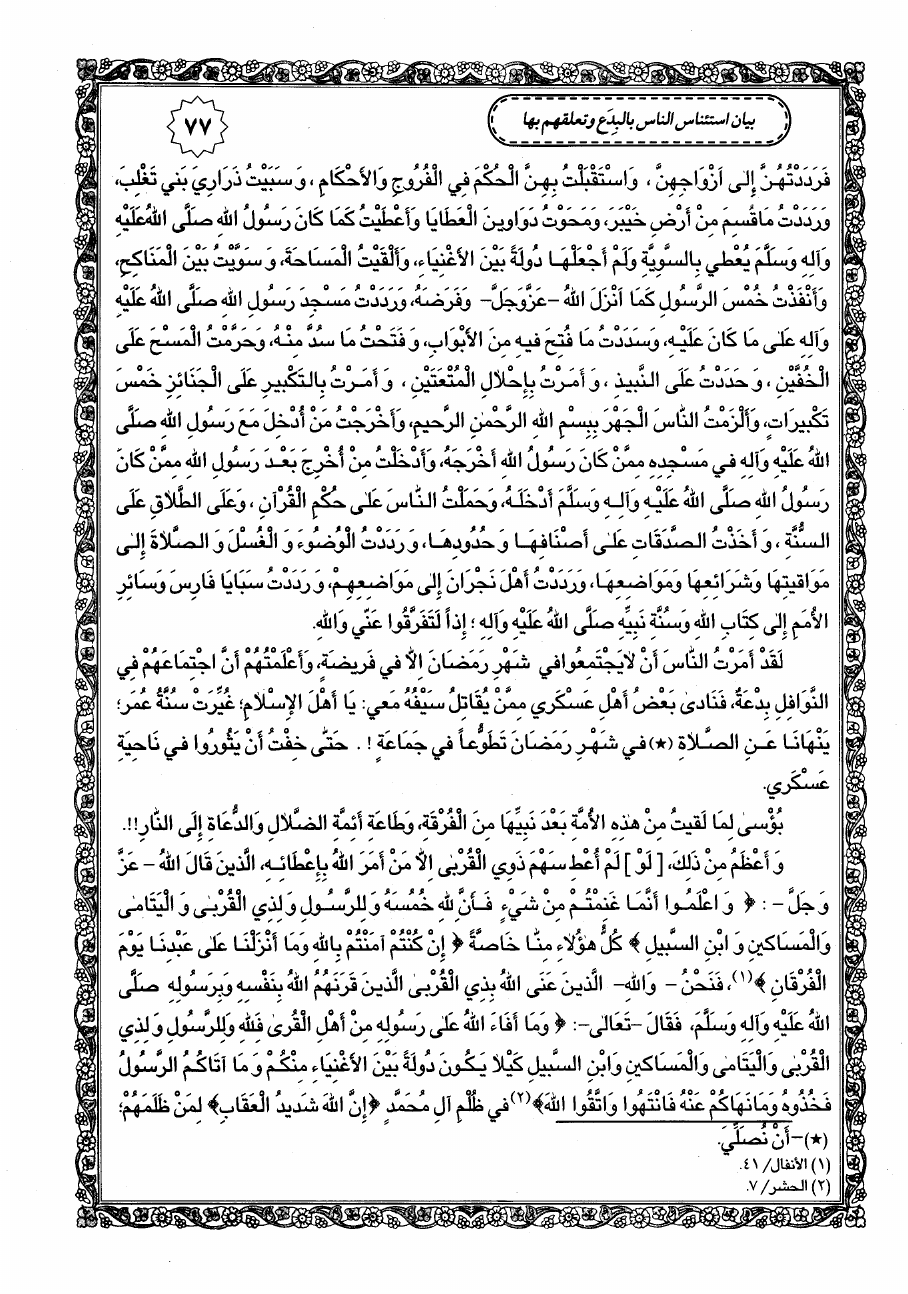 بيان استئناس الناس بالبِدَع وتعلقهم بها
٧٧
فَرَدَدْتُهُنَّ إِلى اَزْوَاجِهِنَّ، وَاسْتَقْبَلْتُ بِهِنَّ الْحُكْمَ فِي الْفُرُوجِ وَالأَحْكَامِ، وَسَبَيْتُ ذَرَارِيَ بَني تَغْلِبَ،
وَرَدَدْتُ مَاقُسِمَ مِنْ أَرْضِ خَيْبَرَ، وَمَحَوْتُ دَوَاوينَ الْعَطَايَا وَأَعْطَيْتُ كَمَا كَانَ رَسُولُ اللهِ صَلَّى اللهُ عَلَيْهِ
وَآلِهِ وَسَلَّمَ يُعْطي بِالسَّوِيَّةِ وَلَمْ أَجْعَلْهَا دُولَةً بَيْنَ الأَغْنِيَاءِ، وَأَلْقَيْتُ الْمَسَاحَةَ، وَسَوَّيْتُ بَيْنَ الْمَنَاكِحِ،
وَأَنْفَذْتُ خُمْسَ الرَّسُولِ كَمَا اَنْزَلَ اللهُ –عَزَّوَجَلَّ– وَفَرَضَهُ، وَرَدَدْتُ مَسْجِدَ رَسُولِ اللهِ صَلَّى اللهُ عَلَيْهِ
وَآلِهِ عَلى مَا كَانَ عَلَيْهِ، وَسَدَدْتُ مَا فُتِحَ فيهِ مِنَ الأَبْوَابِ، وَفَتَحْتُ مَا سُدَّ مِنْهُ، وَحَرَّمْتُ الْمَسْحَ عَلَى
الْخُفَّيْنِ، وَحَدَدْتُ عَلَى النَّبيذِ، وَأَمَرْتُ بِإِحْلاَلِ الْمُتْعَتَيْنِ، وَأَمَرْتُ بِالتَّكْبيرِ عَلَى الْجَنَائِزِ خَمْسَ
تَكْبيرَاتٍ، وَأَلْزَمْتُ النَّاسَ الْجَهْرَ بِبِسْمِ اللهِ الرَّحْمٰنِ الرَّحيمِ، وَأَخْرَجْتُ مَنْ أُدْخِلَ مَعَ رَسُولِ اللهِ صَلَّى
اللهُ عَلَيْهِ وَآلِهِ في مَسْجِدِهِ مِمَّنْ كَانَ رَسُولُ اللهِ أَخْرَجَهُ، وَأَدْخَلْتُ مِنْ أُخْرِجَ بَعْدَ رَسُولِ اللهِ مِمَّنْ كَانَ
رَسُولُ اللهِ صَلَّى اللهُ عَلَيْهِ وَآلِهِ وَسَلَّمَ أَدْخَلَهُ، وَحَمَلْتُ النَّاسَ عَلى حُكْمِ الْقُرْآنِ، وَعَلَى الطَّلاَقِ عَلَى
السُّنَّةِ، وَأَخَذْتُ الصَّدَقَاتِ عَلى أَصْنَافِهَا وَحُدُودِهَا، وَرَدَدْتُ الْوُضُوءَ وَالْغُسْلَ وَالصَّلاَةَ إِلى
مَوَاقيتِهَا وَشَرَائِعِهَا وَمَوَاضِعِهَا، وَرَدَدْتُ أَهْلَ نَجْرَانَ إِلى مَوَاضِعِهِمْ، وَرَدَدْتُ سَبَايَا فَارِسَ وَسَائِرِ
الأُمَمِ إِلى كِتَابِ اللهِ وَسُنَّةِ نَبِيِّهِ صَلَّى اللهُ عَلَيْهِ وَآلِهِ؛ إِذاً لَتَفَرَّقُوا عَنّي وَاللهِ.
لَقَدْ أَمَرْتُ النَّاسَ أَنْ لاَيَجْتَمِعُوافي شَهْرِ رَمَضَانَ اِلاَّ في فَريضَةٍ، وَأَعْلَمْتُهُمْ أَنَّ اجْتِمَاعَهُمْ فِي
النَّوَافِلِ بِدْعَةٌ، فَنَادى بَعْضُ أَهْلِ عَسْكَري مِمَّنْ يُقَاتِلُ سَيْفُهُ مَعي: يَا أَهْلَ الإِسْلاَمِ؛ غُيِّرَتْ سُنَّةُ عُمَرَ؛
يَنْهَانَا عَنِ الصَّلاَةِ (★) في شَهْرِ رَمَضَانَ تَطَوُّعاً في جَمَاعَةٍ!. حَتّى خِفْتُ أَنْ يَثُورُوا في نَاحِيَةِ
عَسْكَري.
بُؤْسى لِمَا لَقيتُ مِنْ هٰذِهِ الأُمَّةِ بَعْدَ نَبِيِّهَا مِنَ الْفُرْقَةِ، وَطَاعَةِ أَئِمَّةِ الضَّلاَلِ وَالدُّعَاةِ إِلَى النَّارِ!!.
وَأَعْظَمُ مِنْ ذَلِكَ، [لَوْ] لَمْ أُعْطِ سَهْمَ ذَوِي الْقُرْبى اِلاَّ مَنْ أَمَرَ اللهُ بِإِعْطَائِهِ، الَّذينَ قَالَ اللهُ –عَزَّ
وَجَلَّ–: ﴿وَاعْلَمُوا أَنَّمَا غَنِمْتُمْ مِنْ شَيْءٍ فَأَنَّ لِلّٰهِ خُمُسَهُ وَلِلرَّسُولِ وَلِذِي الْقُرْبى وَالْيَتَامى
وَالْمَسَاكينِ وَابْنِ السَّبيلِ﴾ كُلُّ هؤُلاَءِ مِنَّا خَاصَّةً ﴿إِنْ كُنْتُمْ آمَنْتُمْ بِاللهِ وَمَا أَنْزَلْنَا عَلى عَبْدِنَا يَوْمَ
الْفُرْقَانِ﴾(١)، فَنَحْنُ –وَاللهِ– الَّذينَ عَنَى اللهُ بِذِي الْقُرْبَى الَّذينَ قَرَنَهُمُ اللهُ بِنَفْسِهِ وَبِرَسُولِهِ صَلَّى
اللهُ عَلَيْهِ وَآلِهِ وَسَلَّمَ، فَقَالَ –تَعَالى–: ﴿وَمَا أَفَاءَ اللهُ عَلى رَسُولِهِ مِنْ أَهْلِ الْقُرى فَلِلّٰهِ وَلِلرَّسُولِ وَلِذِي
الْقُرْبى وَالْيَتَامى وَالْمَسَاكينِ وَابْنِ السَّبيلِ كَيْلاَ يَكُونَ دُولَةً بَيْنَ الأَغْنِيَاءِ مِنْكُمْ وَمَا آتَاكُمُ الرَّسُولُ
فَخُذُوهُ وَمَانَهَاكُمْ عَنْهُ فَانْتَهُوا وَاتَّقُوا اللهَ﴾(٢) في ظُلْمِ آلِ مُحَمَّدٍ ﴿إِنَّ اللهَ شَديدُ الْعِقَابِ﴾ لِمَنْ ظَلَمَهُمْ؛
(★)–أَنْ نُصَلِّيَ.
(١) الأنفال/ ٤١.
(٢) الحشر/ ٧.